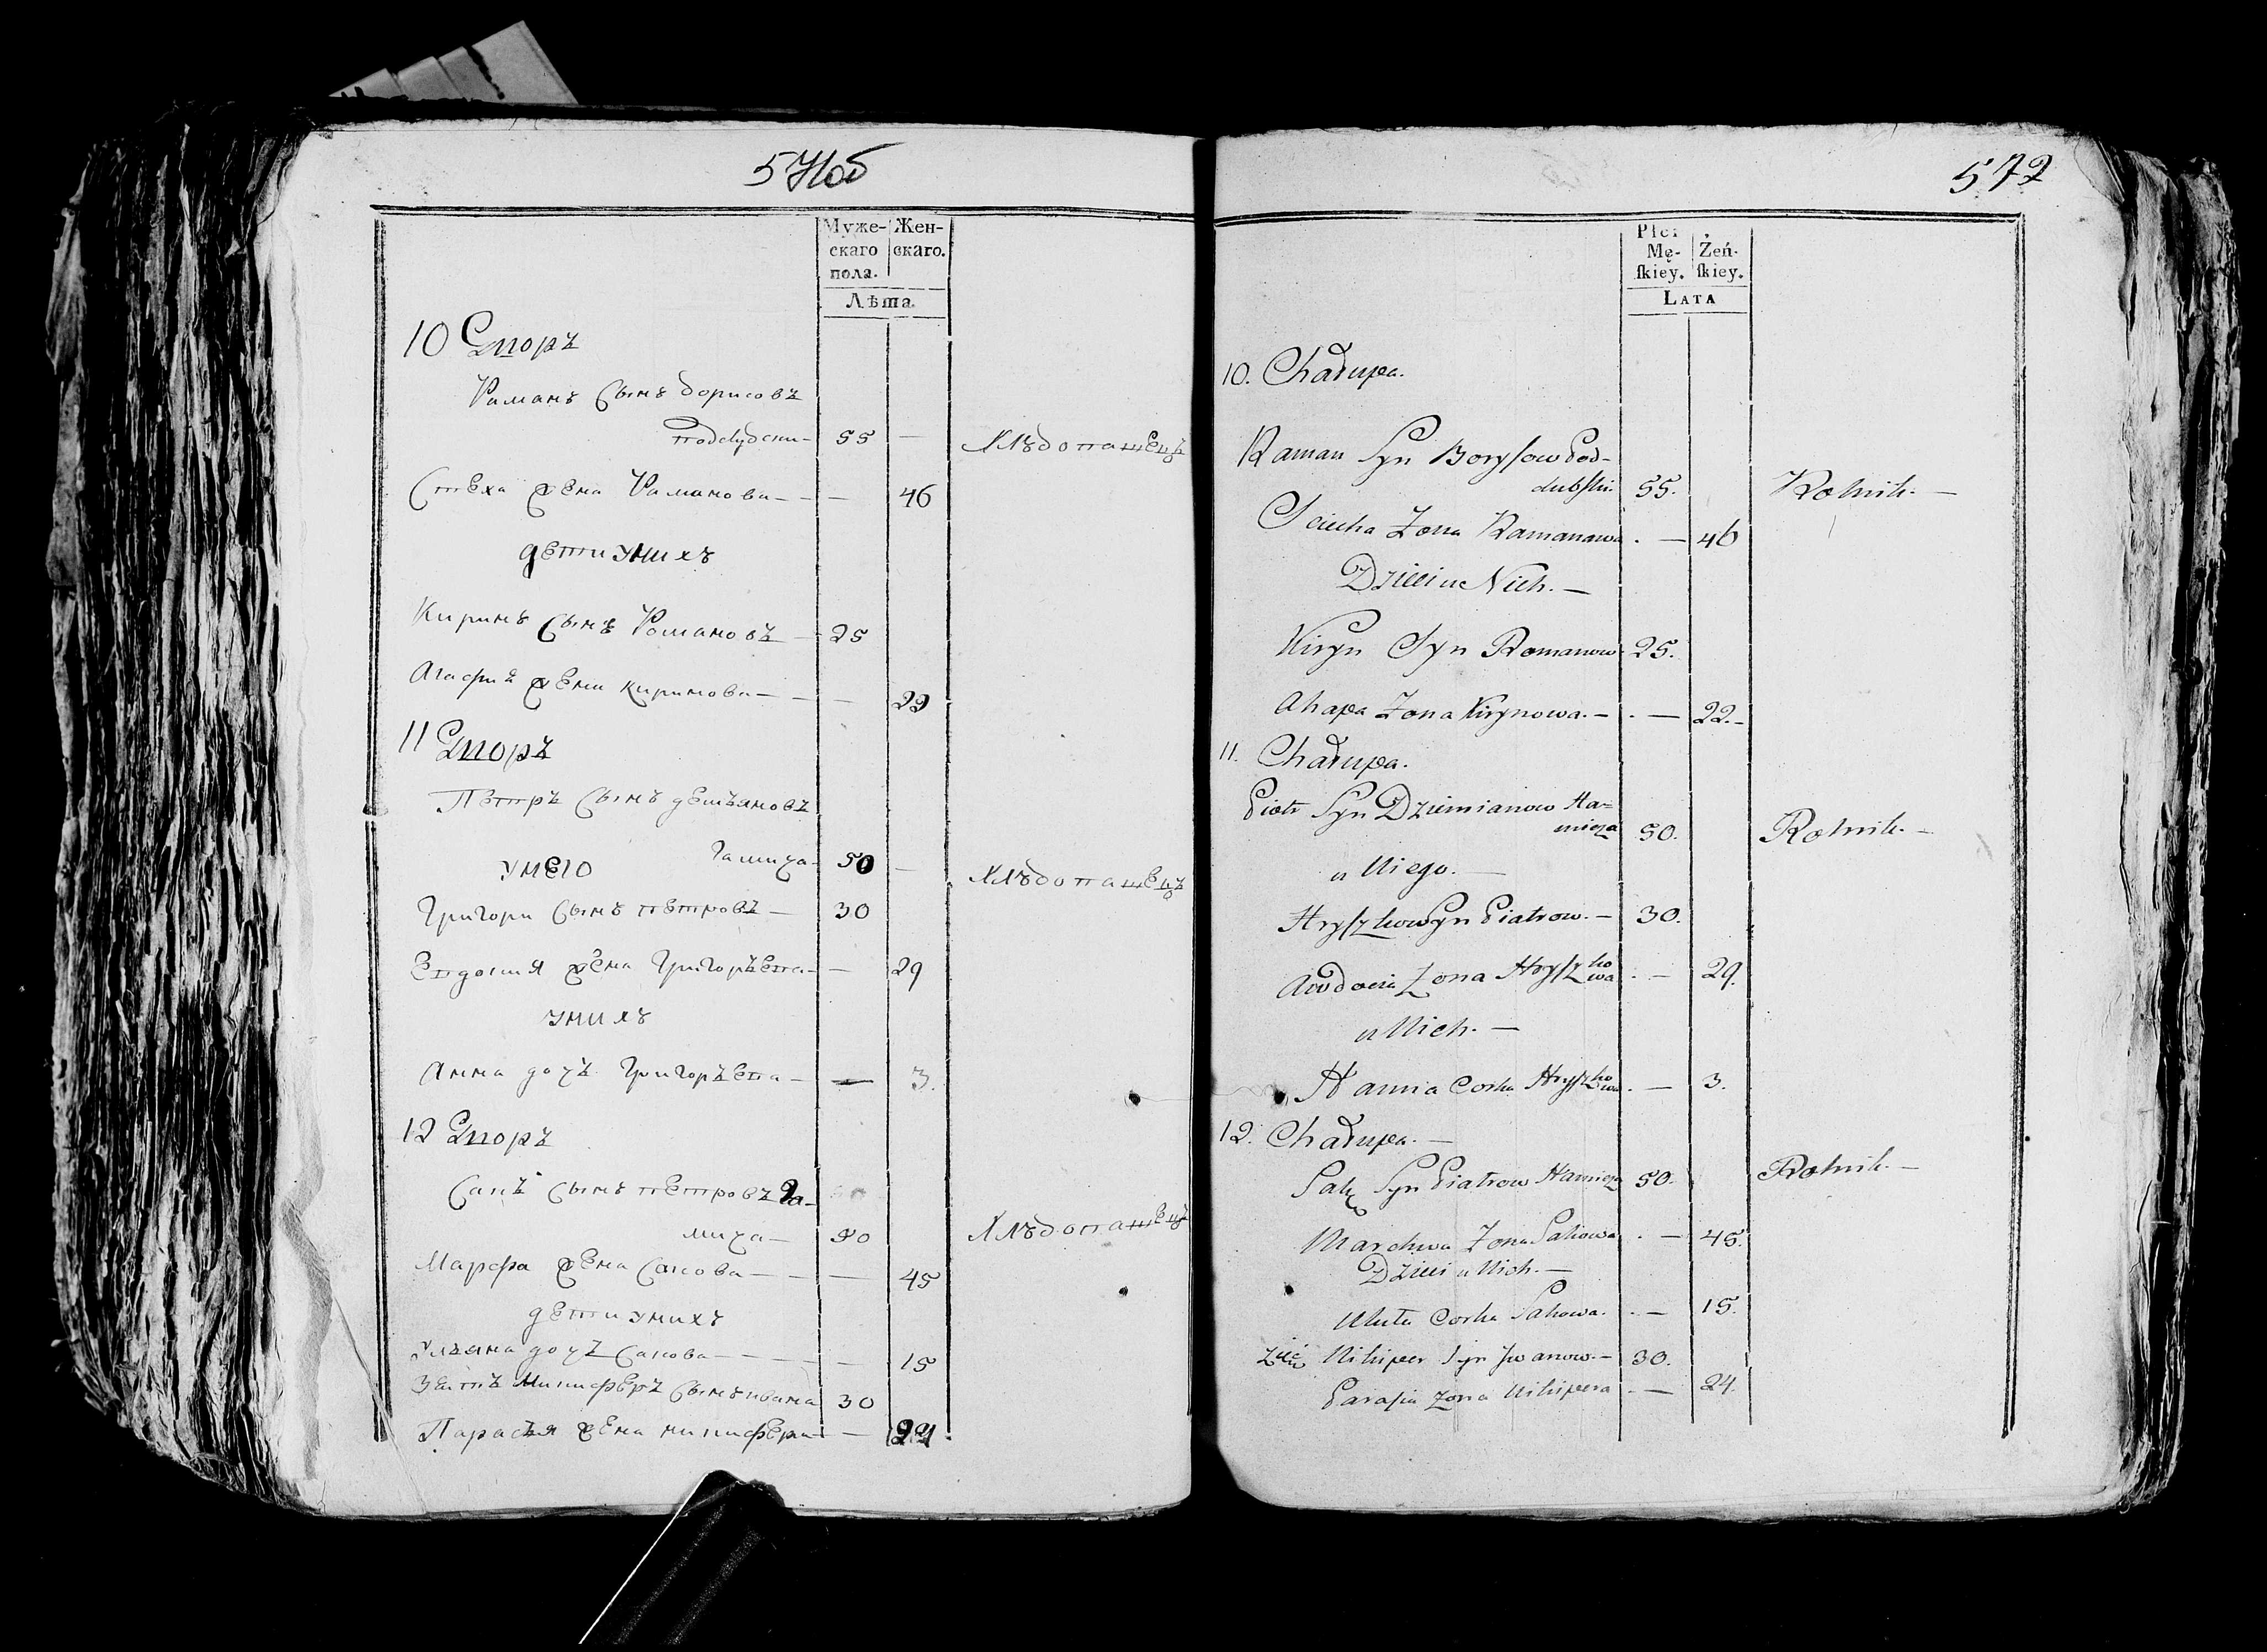 571об
Муже-
скаго
пола.
Жен-
скаго.
Лѣта.
10 Дворъ
Раманъ Сынъ борисовъ
поддубски — 55 — Хлѣбопашецъ
Стеха жена Раманова — — 46
дети уних
Киринъ Сынъ Романовъ — 25
Агафия жена киринова — — 22
11 Дворъ
Петръ Сынъ демъяновъ
Гамиза — 50 — Хлѣбопашецъ
унего
Григори Сынъ петровъ — 30
Евдокия жена Григорьева — — 29
унихъ
Анна дочь Григорьева — — 3.
12 Дворъ
Сакъ Сынъ петровъ Га-
миза — 50 Хлѣбопашецъ
Марфа жена Сакова — — 45
дети унихъ
Ульяна дочь Сакова — — 15
Зять Никифёръ Сынъ ивана 30
Парасья жена никифёра — — 24
572
Płci
Mę-
ſkiey.
Żeń-
ſkiey.
LATA
10. Chałupa.
Raman Syn Boryſow Pod-
dubſki. 55. Rolnik. —
Sciecha Zona Ramanowa . — 46
Dzieci u Nich. —
Kiryn Syn Romanow 25.
Ahapa Zona Kirynowa. — . — 22. -
11. Chałupa.
Piotr Syn Dziemianow Ha-
mieza 50. Rolnik. —
u Niego. —
Hryſzkow Syn Piatrow. — 30.
Awdocia Zona Hryſzkowa . — 29.
u Nich. —
Hanna Corka Hryſzkowa . — 3.
12. Chałupa. —
Sak Syn Piatrow Hamieza 50. Rolnik. —
Marchwa Zona Sakowa . — 45.
Dzieci u Nich. —
Uluta Corka Sakowa. . — 15.
Zięć Nikiper Syn Jwanow. — 30.
Paraſia Zona Nikipera . — 24.